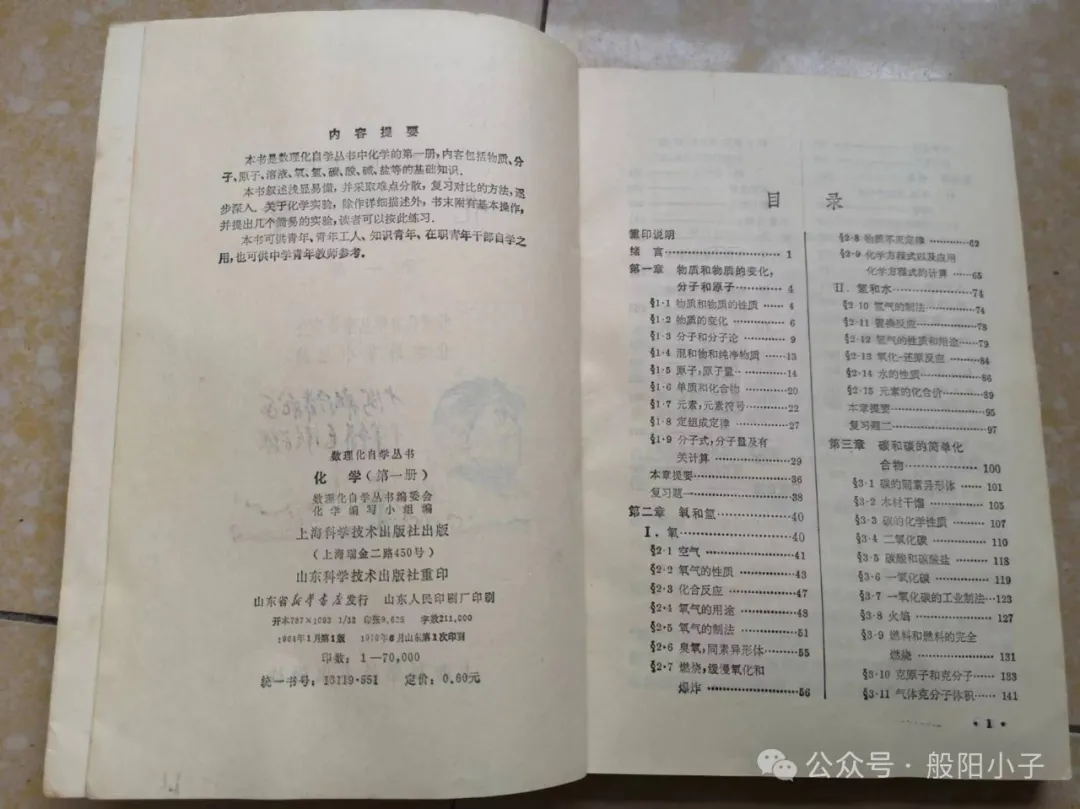 内容提要
本书是数理化自学丛书中化学的第一册,内容包括物质、分
子、原子、溶液、氧、氢、碳、酸、碱、盐等的基础知识.
本书叙述浅显易懂,并采取难点分散,复习对比的方法,逐
步深入.关于化学实验,除作详细描述外,书末附有基本操作,
并提出几个简易的实验,读者可以按此练习.
本书可供青年、青年工人、知识青年、在职青年干部自学之
用,也可供中学青年教师参考.
数理化自学丛书
化学(第一册)
数理化自学丛书编委会
化学编写小组编
上海科学技术出版社出版
(上海瑞金二路450号)
山东科学技术出版社重印
山东省新华书店发行 山东人民印刷厂印刷
开本787×1092 1/32 印张9.625 字数211,000
1964年1月第1版 1978年6月山东第1次印刷
印数:1—70,000
统一书号:13119·651 定价:0.80元
目录
重印说明
绪言 1
第一章 物质和物质的变化,
分子和原子 4
§1·1 物质和物质的性质 4
§1·2 物质的变化 6
§1·3 分子和分子论 9
§1·4 混和物和纯净物质 13
§1·5 原子,原子量 14
§1·6 单质和化合物 20
§1·7 元素,元素符号 22
§1·8 定组成定律 27
§1·9 分子式,分子量及有
关计算 29
本章提要 36
复习题一 38
第二章 氧和氢 40
I.氧 40
§2·1 空气 41
§2·2 氧气的性质 43
§2·3 化合反应 47
§2·4 氧气的用途 48
§2·5 氧气的制法 51
§2·6 臭氧,同素异形体 55
§2·7 燃烧,缓慢氧化和
爆炸 56
§2·8 物质不灭定律 62
§2·9 化学方程式以及应用
化学方程式的计算 65
II.氢和水 74
§2·10 氢气的制法 74
§2·11 置换反应 78
§2·12 氢气的性质和用途 79
§2·13 氧化-还原反应 84
§2·14 水的性质 86
§2·15 元素的化合价 89
本章提要 95
复习题二 97
第三章 碳和碳的简单化
合物 100
§3·1 碳的同素异形体 101
§3·2 木材干馏 105
§3·3 碳的化学性质 107
§3·4 二氧化碳 110
§3·5 碳酸和碳酸盐 118
§3·6 一氧化碳 119
§3·7 一氧化碳的工业制法 123
§3·8 火焰 127
§3·9 燃料和燃料的完全
燃烧 131
§3·10 克原子和克分子 133
§3·11 气体克分子体积 141
·1·
公众号·般阳小子